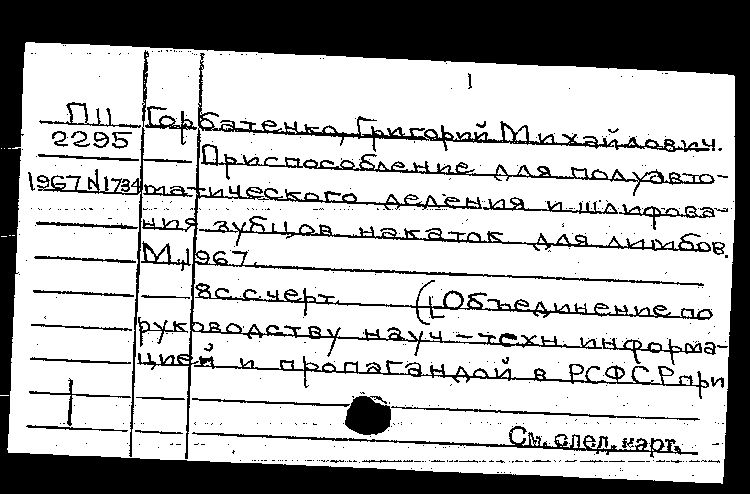 1
П11 Горбатенко, Григорий Михайлович.
2295 Приспособление для полуавто-
1967 N1734 матического деления и шлифова-
ния зубцов накаток для лимбов.
М., 1967.
8с. с черт. ([Объединение по
руководству науч-техн. информа-
цией и пропагандой в РСФСР при
См. след. карт.